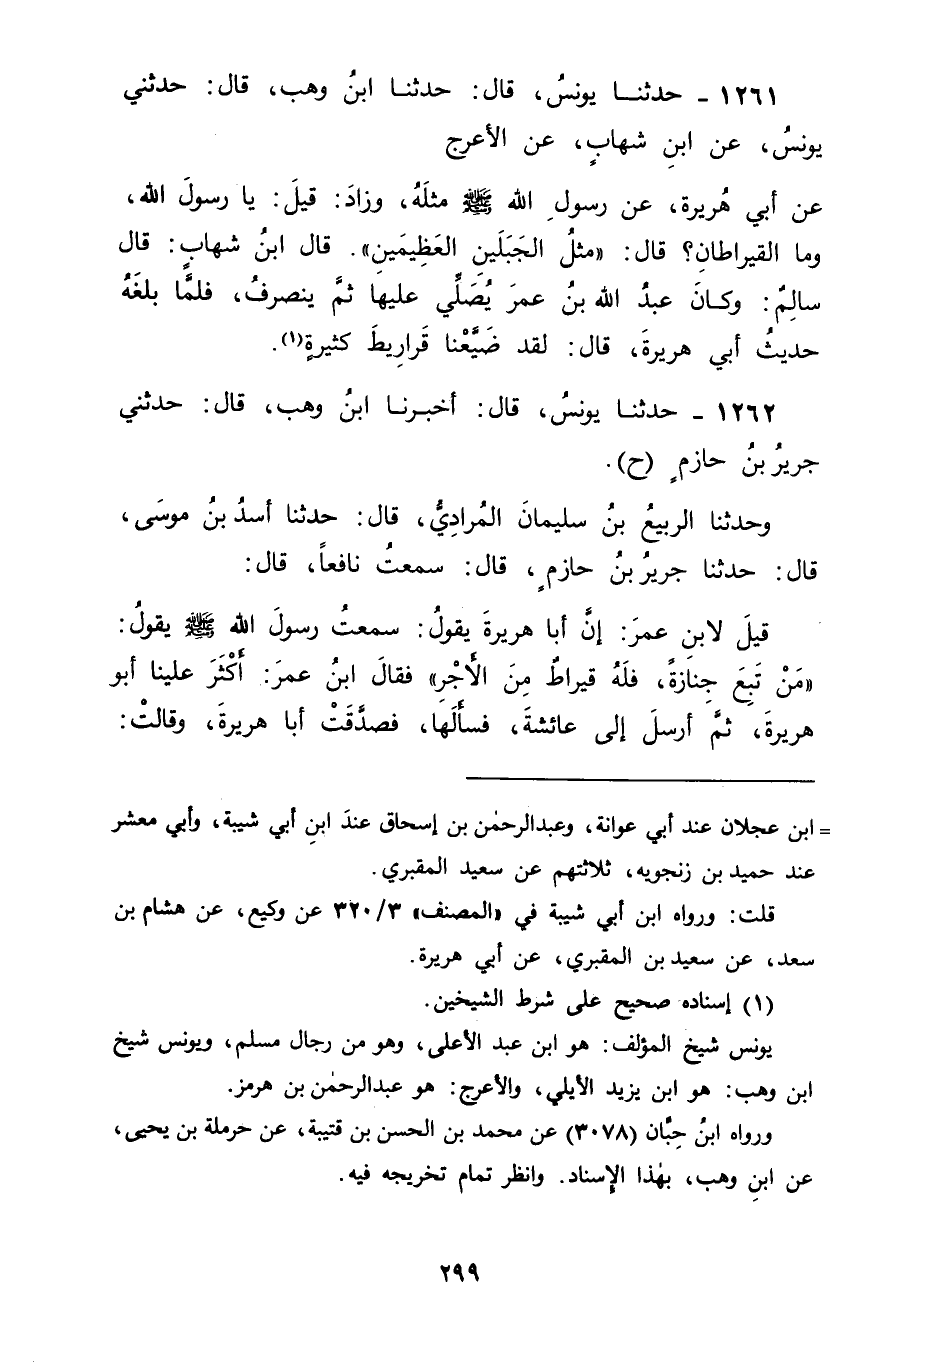 ١٢٦١ - حدثنــا يونسُ، قال: حدثنـا ابنُ وهب، قال: حدثني
يونسُ، عن ابنِ شهابٍ، عن الأعرج
عن أبي هُريرة، عن رسولِ الله ﷺ مثلَهُ، وزادَ: قيلَ: يا رسولَ الله،
وما القيراطانِ؟ قال: «مثلُ الجَبَلَينِ العَظِيمَينِ». قال ابنُ شهابٍ: قال
سالِمٌ: وكـانَ عبدُ الله بنُ عمرَ يُصَلِّي عليها ثمَّ ينصرفُ، فلمَّا بلغَهُ
حديثُ أبي هريرةَ، قال: لقد ضَيَّعْنا قَرارِيطَ كثيرةٍ(١).
١٢٦٢ - حدثنـا يونسُ، قال: أخبـرنـا ابنُ وهب، قال: حدثني
جريرُ بنُ حازمٍ (ح).
وحدثنا الربيعُ بنُ سليمانَ المُرادِيُّ، قال: حدثنا أسدُ بنُ موسَى،
قال: حدثنا جريرُ بنُ حازمٍ، قال: سمعتُ نافعاً، قال:
قيلَ لابنِ عمرَ: إنَّ أبا هريرةَ يقولُ: سمعتُ رسولَ الله ﷺ يقولُ:
«مَنْ تَبِعَ جِنازَةً، فلَهُ قيراطٌ مِنَ الأَجْرِ» فقالَ ابنُ عمرَ: أَكْثَرَ علينا أبو
هريرةَ، ثمَّ أرسلَ إلى عائشةَ، فسأَلَها، فصدَّقَتْ أبا هريرةَ، وقالتْ:
= ابن عجلان عند أبي عوانة، وعبدالرحمٰن بن إسحاق عندَ ابنِ أبي شيبة، وأبي معشر
عند حميد بن زنجويه، ثلاثتهم عن سعيد المقبري.
قلت: ورواه ابن أبي شيبة في «المصنف» ٣٢٠/٣ عن وكيع، عن هشام بن
سعد، عن سعيد بن المقبري، عن أبي هريرة.
(١) إسناده صحيح على شرط الشيخين.
يونس شيخ المؤلف: هو ابن عبد الأعلى، وهو من رجال مسلم، ويونس شيخ
ابن وهب: هو ابن يزيد الأيلي، والأعرج: هو عبدالرحمٰن بن هرمز.
ورواه ابنُ حِبَّان (٣٠٧٨) عن محمد بن الحسن بن قتيبة، عن حرملة بن يحيى،
عن ابنِ وهب، بهٰذا الإسناد. وانظر تمام تخريجه فيه.
٢٩٩